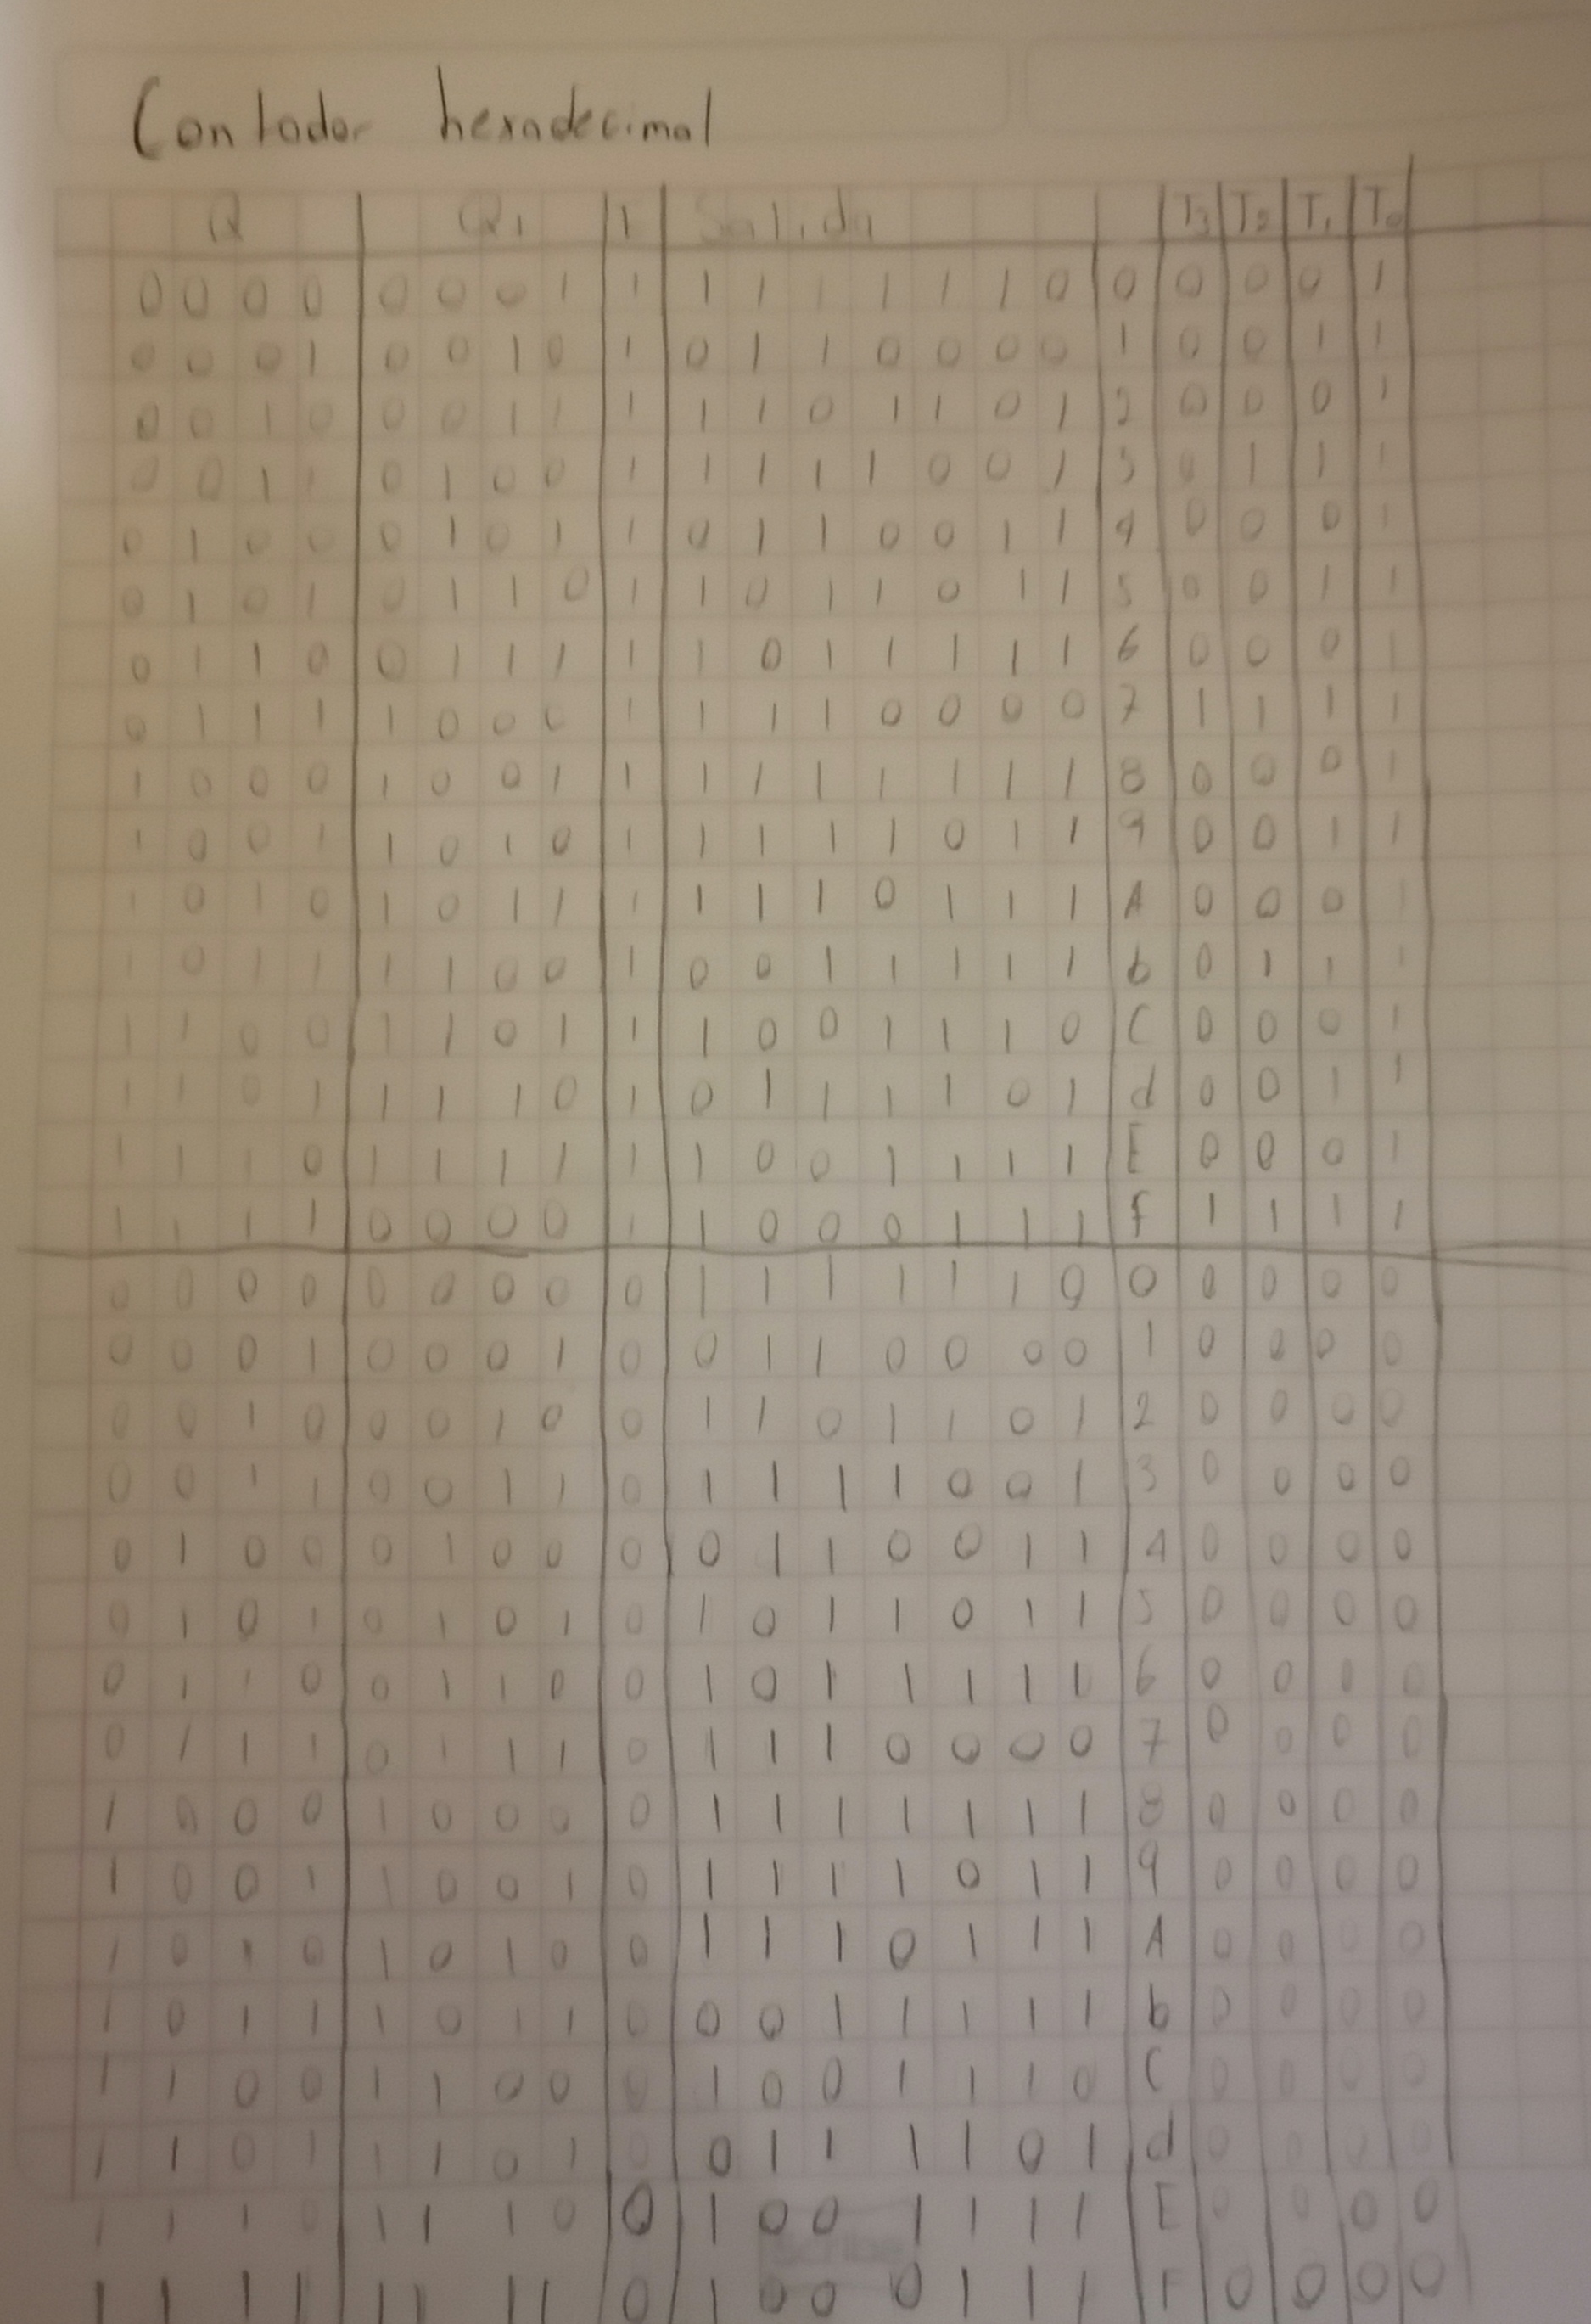 Contador hexadecimal
Q Q1 I Salida T3 T2 T1 T0
0 0 0 0 0 0 0 1 1 1 1 1 1 1 1 0 0 0 0 0 1
0 0 0 1 0 0 1 0 1 0 1 1 0 0 0 0 1 0 0 1 1
0 0 1 0 0 0 1 1 1 1 1 0 1 1 0 1 2 0 0 0 1
0 0 1 1 0 1 0 0 1 1 1 1 1 0 0 1 3 0 1 1 1
0 1 0 0 0 1 0 1 1 0 1 1 0 0 1 1 4 0 0 0 1
0 1 0 1 0 1 1 0 1 1 0 1 1 0 1 1 5 0 0 1 1
0 1 1 0 0 1 1 1 1 1 0 1 1 1 1 1 6 0 0 0 1
0 1 1 1 1 0 0 0 1 1 1 1 0 0 0 0 7 1 1 1 1
1 0 0 0 1 0 0 1 1 1 1 1 1 1 1 1 8 0 0 0 1
1 0 0 1 1 0 1 0 1 1 1 1 1 0 1 1 9 0 0 1 1
1 0 1 0 1 0 1 1 1 1 1 1 0 1 1 1 A 0 0 0 1
1 0 1 1 1 1 0 0 1 0 0 1 1 1 1 1 b 0 1 1 1
1 1 0 0 1 1 0 1 1 1 0 0 1 1 1 0 C 0 0 0 1
1 1 0 1 1 1 1 0 1 0 1 1 1 1 0 1 d 0 0 1 1
1 1 1 0 1 1 1 1 1 1 0 0 1 1 1 1 E 0 0 0 1
1 1 1 1 0 0 0 0 1 1 0 0 0 1 1 1 f 1 1 1 1
0 0 0 0 0 0 0 0 0 1 1 1 1 1 1 0 0 0 0 0 0
0 0 0 1 0 0 0 1 0 0 1 1 0 0 0 0 1 0 0 0 0
0 0 1 0 0 0 1 0 0 1 1 0 1 1 0 1 2 0 0 0 0
0 0 1 1 0 0 1 1 0 1 1 1 1 0 0 1 3 0 0 0 0
0 1 0 0 0 1 0 0 0 0 1 1 0 0 1 1 4 0 0 0 0
0 1 0 1 0 1 0 1 0 1 0 1 1 0 1 1 5 0 0 0 0
0 1 1 0 0 1 1 0 0 1 0 1 1 1 1 1 6 0 0 0 0
0 1 1 1 0 1 1 1 0 1 1 1 0 0 0 0 7 0 0 0 0
1 0 0 0 1 0 0 0 0 1 1 1 1 1 1 1 8 0 0 0 0
1 0 0 1 1 0 0 1 0 1 1 1 1 0 1 1 9 0 0 0 0
1 0 1 0 1 0 1 0 0 1 1 1 0 1 1 1 A 0 0 0 0
1 0 1 1 1 0 1 1 0 0 0 1 1 1 1 1 b 0 0 0 0
1 1 0 0 1 1 0 0 0 1 0 0 1 1 1 0 C 0 0 0 0
1 1 0 1 1 1 0 1 0 0 1 1 1 1 0 1 d 0 0 0 0
1 1 1 0 1 1 1 0 0 1 0 0 1 1 1 1 E 0 0 0 0
1 1 1 1 1 1 1 1 0 1 0 0 0 1 1 1 F 0 0 0 0
Scribe